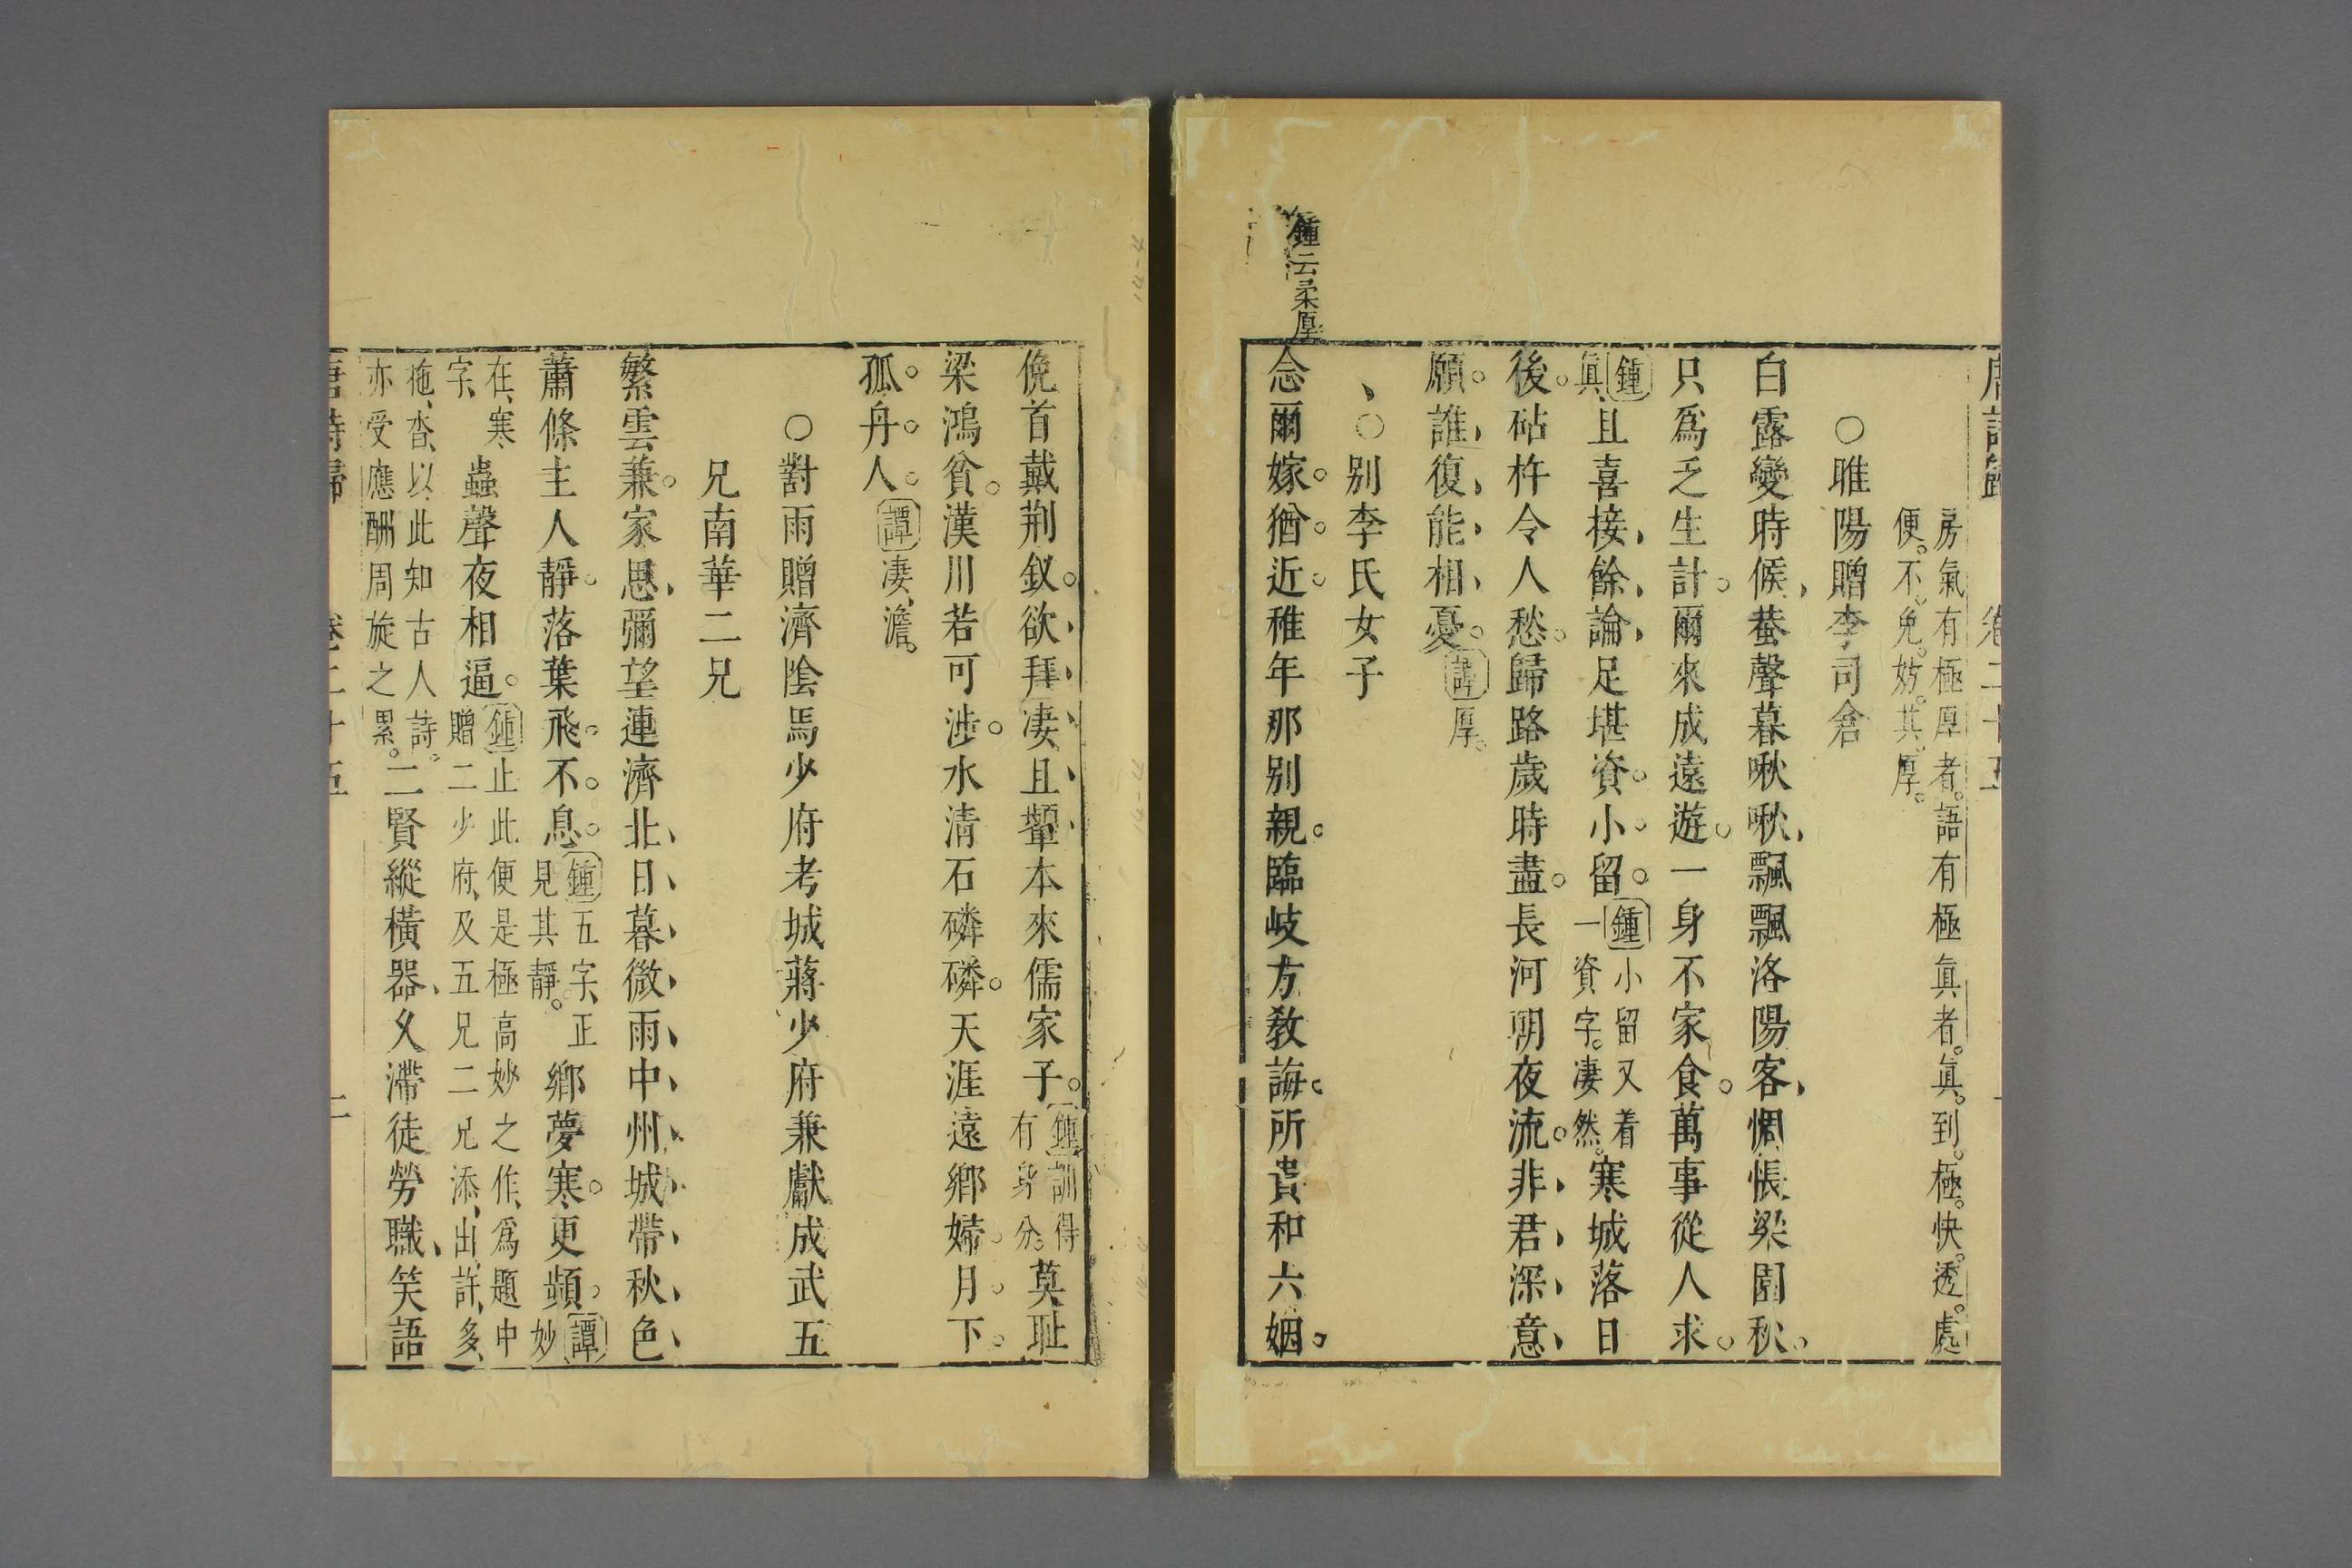 唐詩歸 卷二十五
房氣有極厚者。語有極眞者。眞。到。極。快。透。處。
便。不。免。妨。其。厚。
○睢陽贈李司倉
白露變時候、蛬聲暮啾啾、飄飄洛陽客、惆悵梁園秋。
只爲乏生計。爾來成遠遊。一身不家食。萬事從人求。
鍾
眞、
且喜接、餘、論、足堪資。小。留。
鍾小留又着
一資字。凄然。
寒城落日
後。砧杵令人愁。歸路歲時盡。長河朝夜流。非、君、深、意、
願。誰、復、能、相、憂。譚厚。
、○別李氏女子
鍾云柔厚
念爾嫁。猶。近。稚年那別親。臨岐方教誨。所貴和六姻。
俛首戴荆釵。欲、拜、凄、且、顰、本來儒家子。
鍾訓得
有身分。
莫耻
梁鴻貧。漢川若可涉。水清石磷磷。天涯遠鄉婦。月。下。
孤。舟。人。譚凄、澹。
○對雨贈濟陰馬少府考城蔣少府兼獻成武五
兄南華二兄
繁雲兼。家思、彌望連濟北、日、暮、微、雨、中、州、城、帶、秋、色、
蕭條主人靜。落葉飛。不。息。
鍾五字、正
見其靜。
鄉夢寒。更頻。
譚
妙
在、寒
字、
蟲聲夜相逼。
鍾止此便是極高妙之作、爲題中
贈二少府、及五兄二兄添、出、許、多、
拖、沓、以、此知古人詩。
亦受應酬周旋之累。
二賢縱橫器、久滯徒勞職、笑語
唐詩歸 卷二十五 二